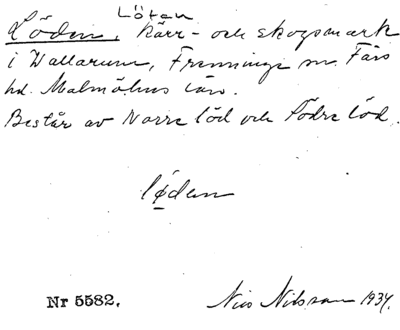 Löten
Löden, kärr- och skogsmark
i Wallarum, Frenninge sn. Färs
hd. Malmöhus län.
Består av Norre löd och Södre löd.
løden
Nr 5582.
Nils Nilsson 1934.